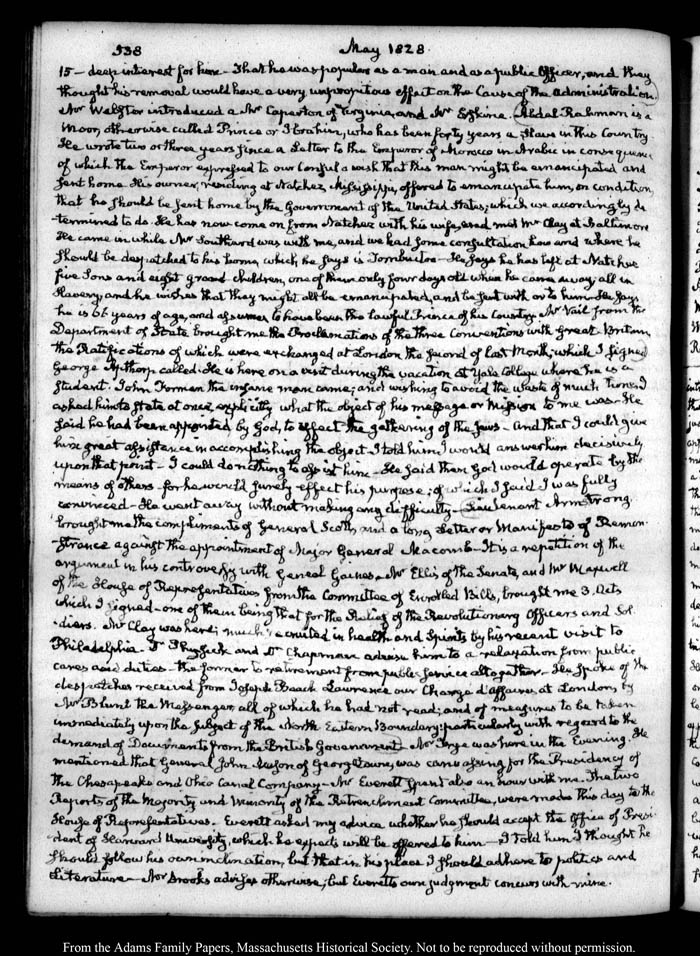 538 May 1828.
15 — deep interest for him — That he was popular as a man and as a public Officer, and they
thought his removal would have a very unpropitious effect on the Cause of the Administration
Mr Webster introduced a Mr Caperton of Virginia, and Mr Erskine. Abdal Rahman is a
Moor, otherwise called Prince or Ibrahim, who has been forty years a slave in this Country
He wrote two or three years since a Letter to the Emperor of Morocco in Arabic in consequence
of which the Emperor expressed to our Consul a wish that this man might be emancipated and
sent home. His owner, residing at Natchez, Mississippi, offered to emancipate him, on condition
that he should be sent home by the Government of the United States; which we accordingly de
termined to do. He has now come on from Natchez with his wife, and met Mr Clay at Baltimore
He came in while Mr Southard was with me, and we had some consultation how and where he
should be despatched to his home, which he says is Tombuctoo — He says he has left at Natchez
five Sons and eight grand children, one of them only four days old when he came away; all in
Slavery, and he wishes that they might all be emancipated, and be sent with or to him. He says
he is 66 years of age, and assumes to have been the lawful Prince of his Country. Mr Vail from the
Department of State brought me the Proclamations of the three Conventions with Great-Britain,
the Ratifications of which were exchanged at London the second of last Month; which I signed
George Apthorp called. He is here on a visit during the vacation at Yale College where he is a
Student. John Forman the insane man came; and wishing to avoid the waste of much time I
asked him to state at once, explicitly what the object of his message or Mission to me was — He
said he had been appointed by God, to effect the gathering of the Jews — And that I could give
him great assistance in accomplishing the object. I told him I would answer him decisively
upon that point — I could do nothing to assist him — He said then God would operate by the
means of others — for he would surely effect his purpose; of which I said I was fully
convinced — He went away without making any difficulty — Lieutenant Armstrong
brought me the compliments of General Scott, and a long Letter or Manifesto of Remon-
strance against the appointment of Major General Macomb — It is a repetition of the
argument in his controversy with General Gaines. Mr Ellis of the Senate, and Mr Maxwell
of the House of Representatives from the Committee of Enrolled Bills, brought me 3 Acts
which I signed — one of them being that for the Relief of the Revolutionary Officers and Sol-
diers. Mr Clay was here; much recruited in health and Spirits by his recent visit to
Philadelphia. Dr Physick and Dr Chapman advise him to a relaxation from public
cares and duties — the former to retirement from public service altogether — He spoke of the
despatches received from Joseph Beach Lawrence our Chargé d'affaires at London, by
Mr Blunt the Messenger, all of which he had not read; and of measures to be taken
immediately upon the subject of the North Eastern Boundary; particularly with regard to the
demand of Documents from the British Government. Mr Frye was here in the Evening. He
mentioned that General John Mason of Georgetown, was canvassing for the Presidency of
the Chesapeake and Ohio Canal Company — Mr Everett spent also an hour with me. The two
Reports, of the Majority and Minority of the Retrenchment Committee, were made this day to the
House of Representatives. Everett asked my advice whether he should accept the Office of Presi-
dent of Harvard University, which he expects will be offered to him — I told him I thought he
should follow his own inclination, but that in his place I should adhere to politics and
Literature — Mr Brooks advises otherwise; but Everett's own judgment concurs with mine.
From the Adams Family Papers, Massachusetts Historical Society. Not to be reproduced without permission.